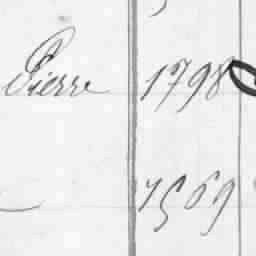 Pierre 1798
1569